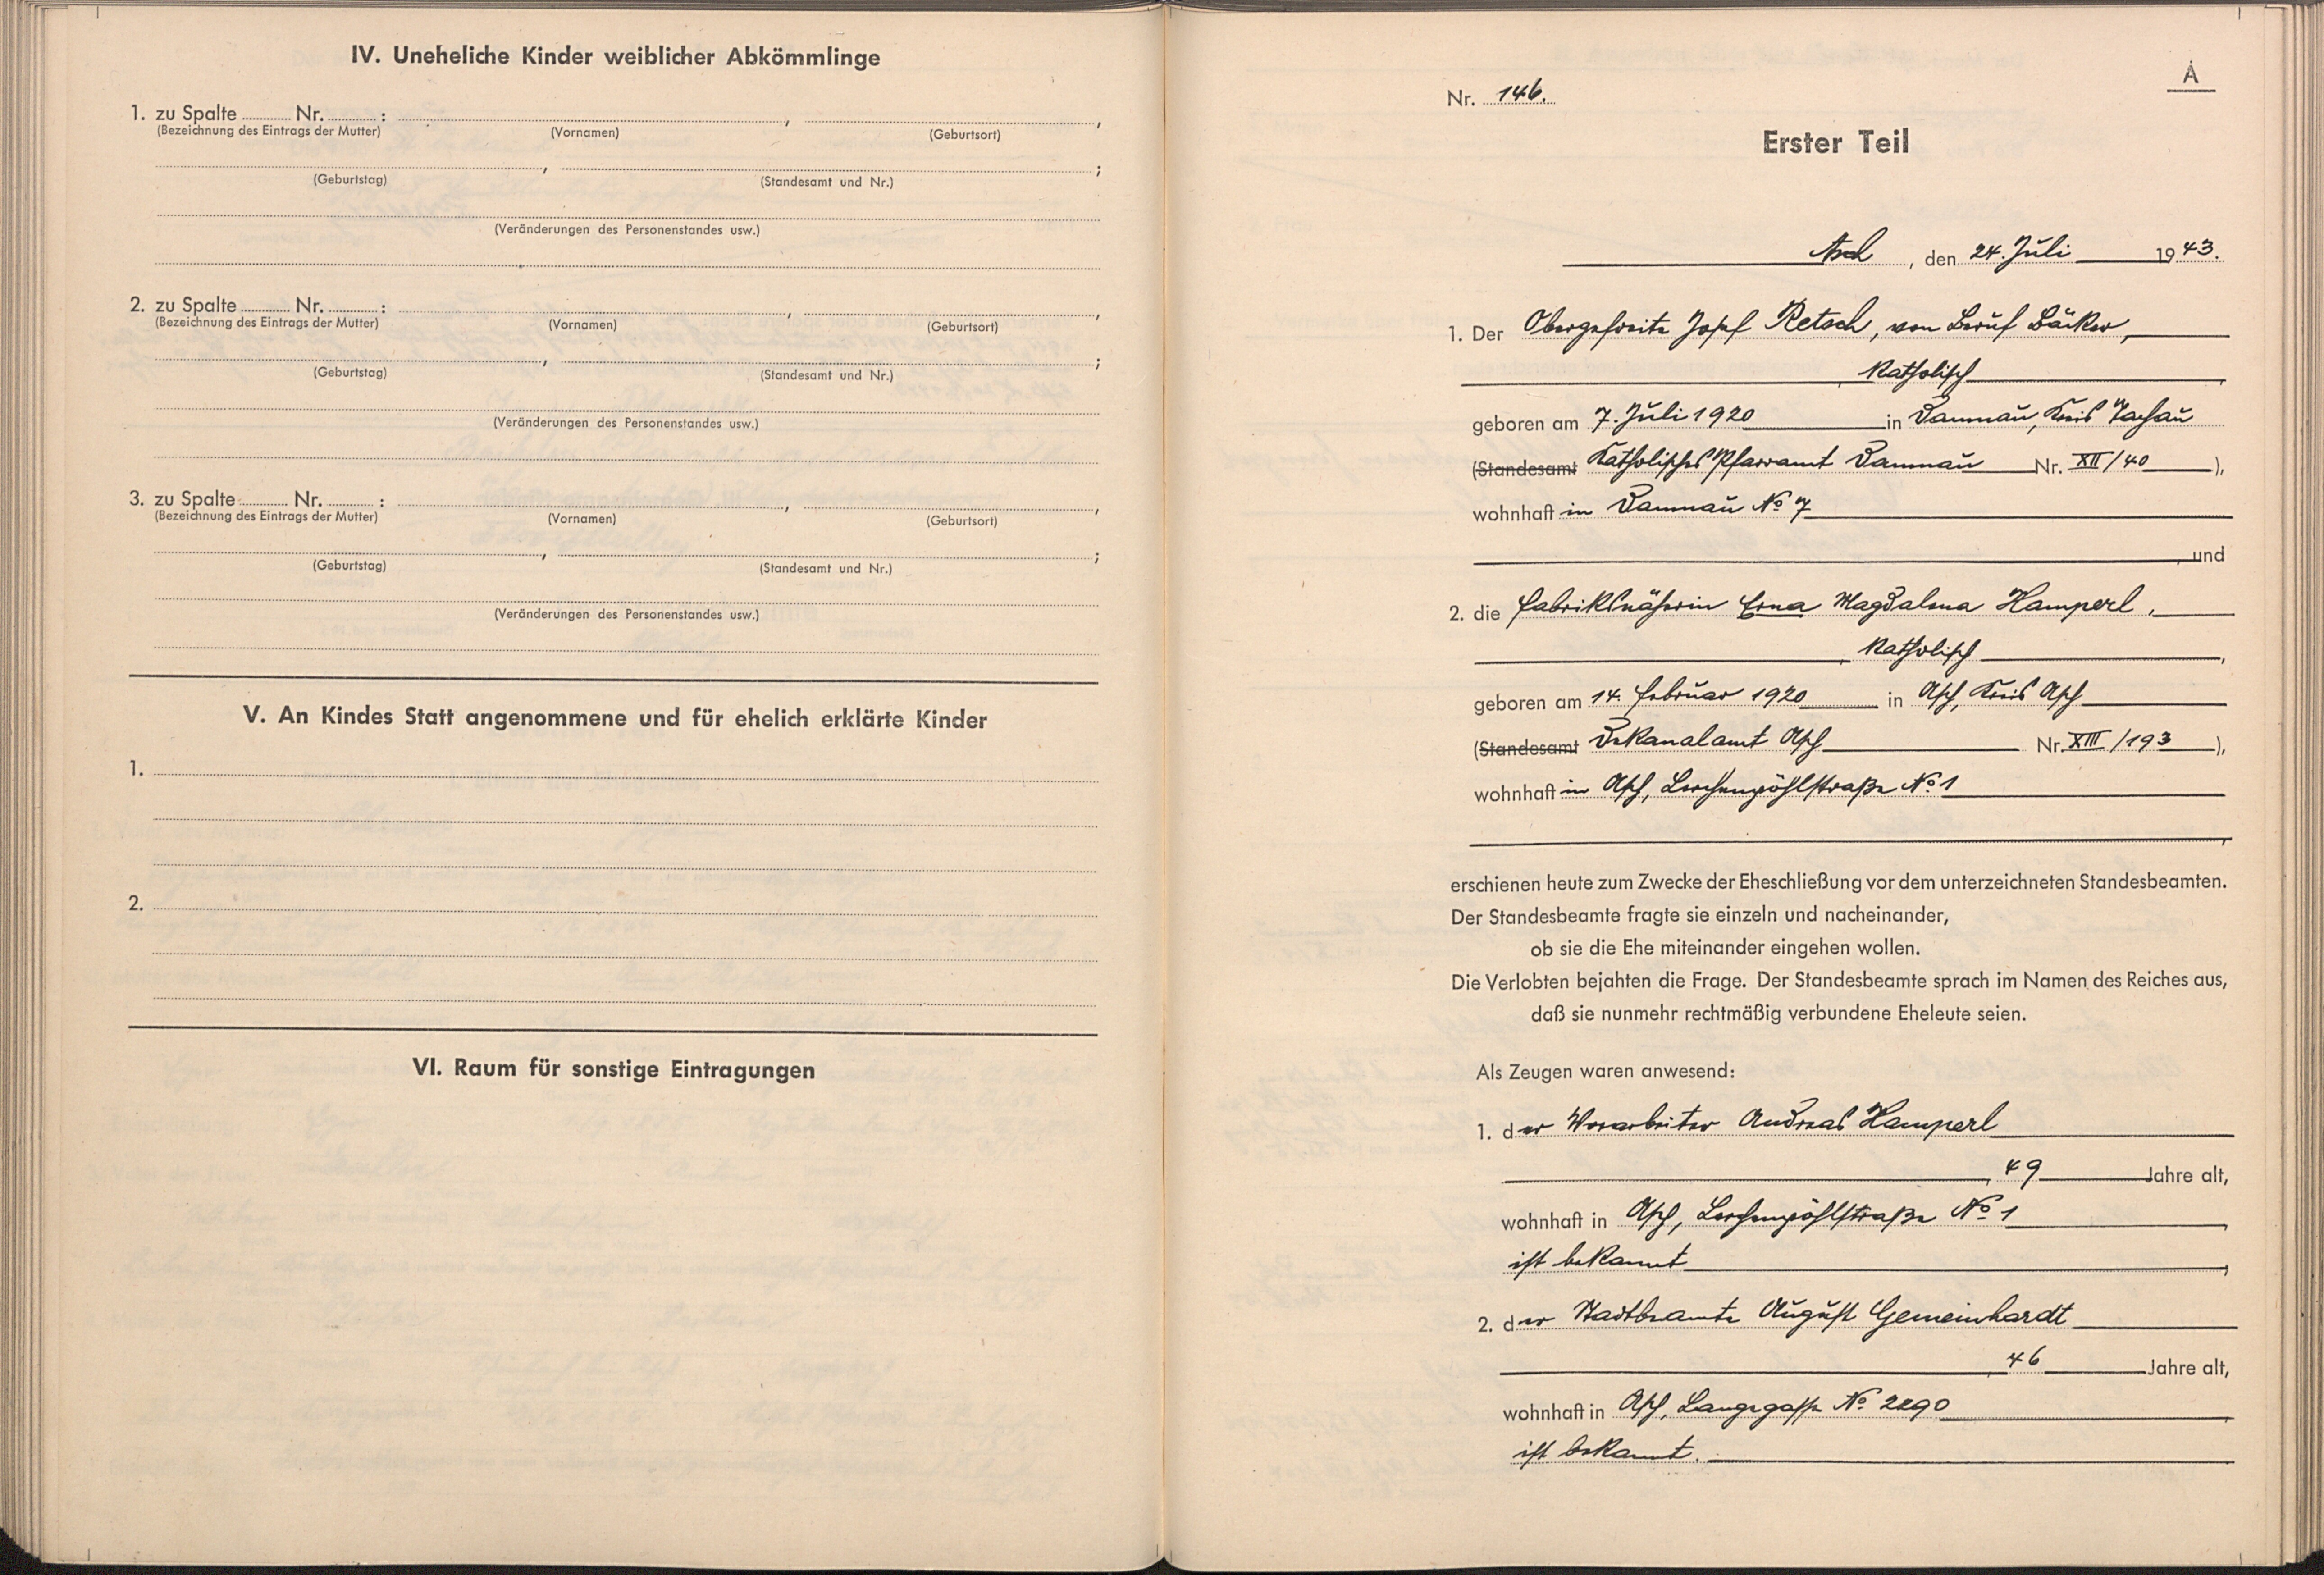 IV. Uneheliche Kinder weiblicher Abkömmlinge
1. zu Spalte Nr. : , ,
(Bezeichnung des Eintrags der Mutter) (Vornamen) (Geburtsort)
, ;
(Geburtstag) (Standesamt und Nr.)
(Veränderungen des Personenstandes usw.)
2. zu Spalte Nr. : , ,
(Bezeichnung des Eintrags der Mutter) (Vornamen) (Geburtsort)
, ;
(Geburtstag) (Standesamt und Nr.)
(Veränderungen des Personenstandes usw.)
3. zu Spalte Nr. : , ,
(Bezeichnung des Eintrags der Mutter) (Vornamen) (Geburtsort)
, ;
(Geburtstag) (Standesamt und Nr.)
(Veränderungen des Personenstandes usw.)
V. An Kindes Statt angenommene und für ehelich erklärte Kinder
1.
2.
VI. Raum für sonstige Eintragungen
A
Nr. 146.
Erster Teil
Asch, den 24. Juli 1943.
1. Der Obergefreite Josef Retsch, von Beruf Bäcker,
katholisch,
geboren am 7. Juli 1920 in Damnau, Kreis Tachau
(Standesamt Katholisches Pfarramt Damnau Nr. XII/40),
wohnhaft in Damnau No 7
, und
2. die Fabriksnäherin Erna Magdalena Hamperl,
katholisch,
geboren am 14. Februar 1920 in Asch, Kreis Asch
(Standesamt Dekanalamt Asch Nr. XIII/193),
wohnhaft in Asch, Lerchenpöhlstraße No 1
,
erschienen heute zum Zwecke der Eheschließung vor dem unterzeichneten Standesbeamten.
Der Standesbeamte fragte sie einzeln und nacheinander,
ob sie die Ehe miteinander eingehen wollen.
Die Verlobten bejahten die Frage. Der Standesbeamte sprach im Namen des Reiches aus,
daß sie nunmehr rechtmäßig verbundene Eheleute seien.
Als Zeugen waren anwesend:
1. der Vorarbeiter Andreas Hamperl
, 49 Jahre alt,
wohnhaft in Asch, Lerchenpöhlstraße No 1,
ist bekannt,
2. der Stadtbeamte August Gemeinhardt
, 46 Jahre alt,
wohnhaft in Asch, Langegasse No 2290,
ist bekannt.